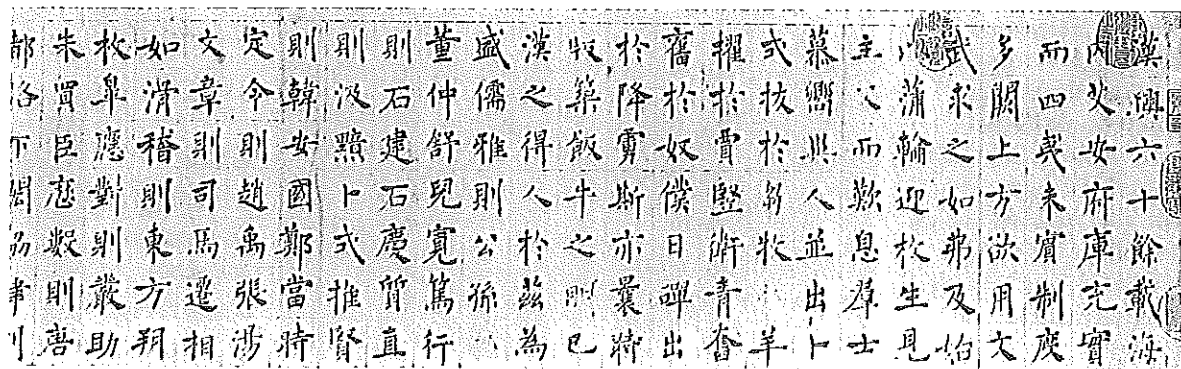 漢興六十餘載海
內乂安府庫充實
而四夷未賓制度
多闕上方欲用文
武求之如弗及始
以蒲輪迎枚生見
主父而歎息羣士
慕嚮異人並出卜
式拔於芻牧羊
擢於賈豎衛青奮
舊於奴僕日磾出
於降虜斯亦曩時
版築飯牛之明已
漢之得人於茲為
盛儒雅則公孫
董仲舒兒寬篤行
則石建石慶質直
則汲黯卜式推賢
則韓安國鄭當時
定令則趙禹張湯
文章則司馬遷相
如滑稽則東方朔
枚皋應對則嚴助
朱買臣歷數則唐
都洛下閎協律則